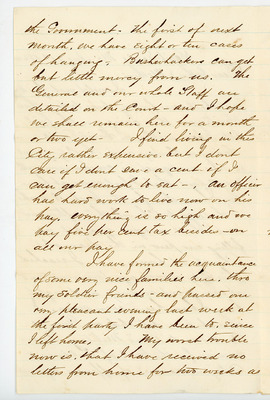 the Government. The first of next
month, we have eight or ten cases
of hanging. Bushwhackers can get
but little mercy from us. The
General and our whole Staff are
detailed on the Court - and I hope
we shall remain here for a month
or two yet - I find living in this
City rather expensive. but I dont
care if I dont save a cent if I
can get enough to eat -, an officer
has hard work to live now on his
pay. everything is so high and we
pay five per cent tax besides - on
all our pay
I have formed the acquaintance
of some very nice families here. thro
my soldier friends - and passed one
very pleasant evening last week at
the first party I have been to. since
I left home. My worst trouble
now is. that I have received no
letters from home for two weeks as